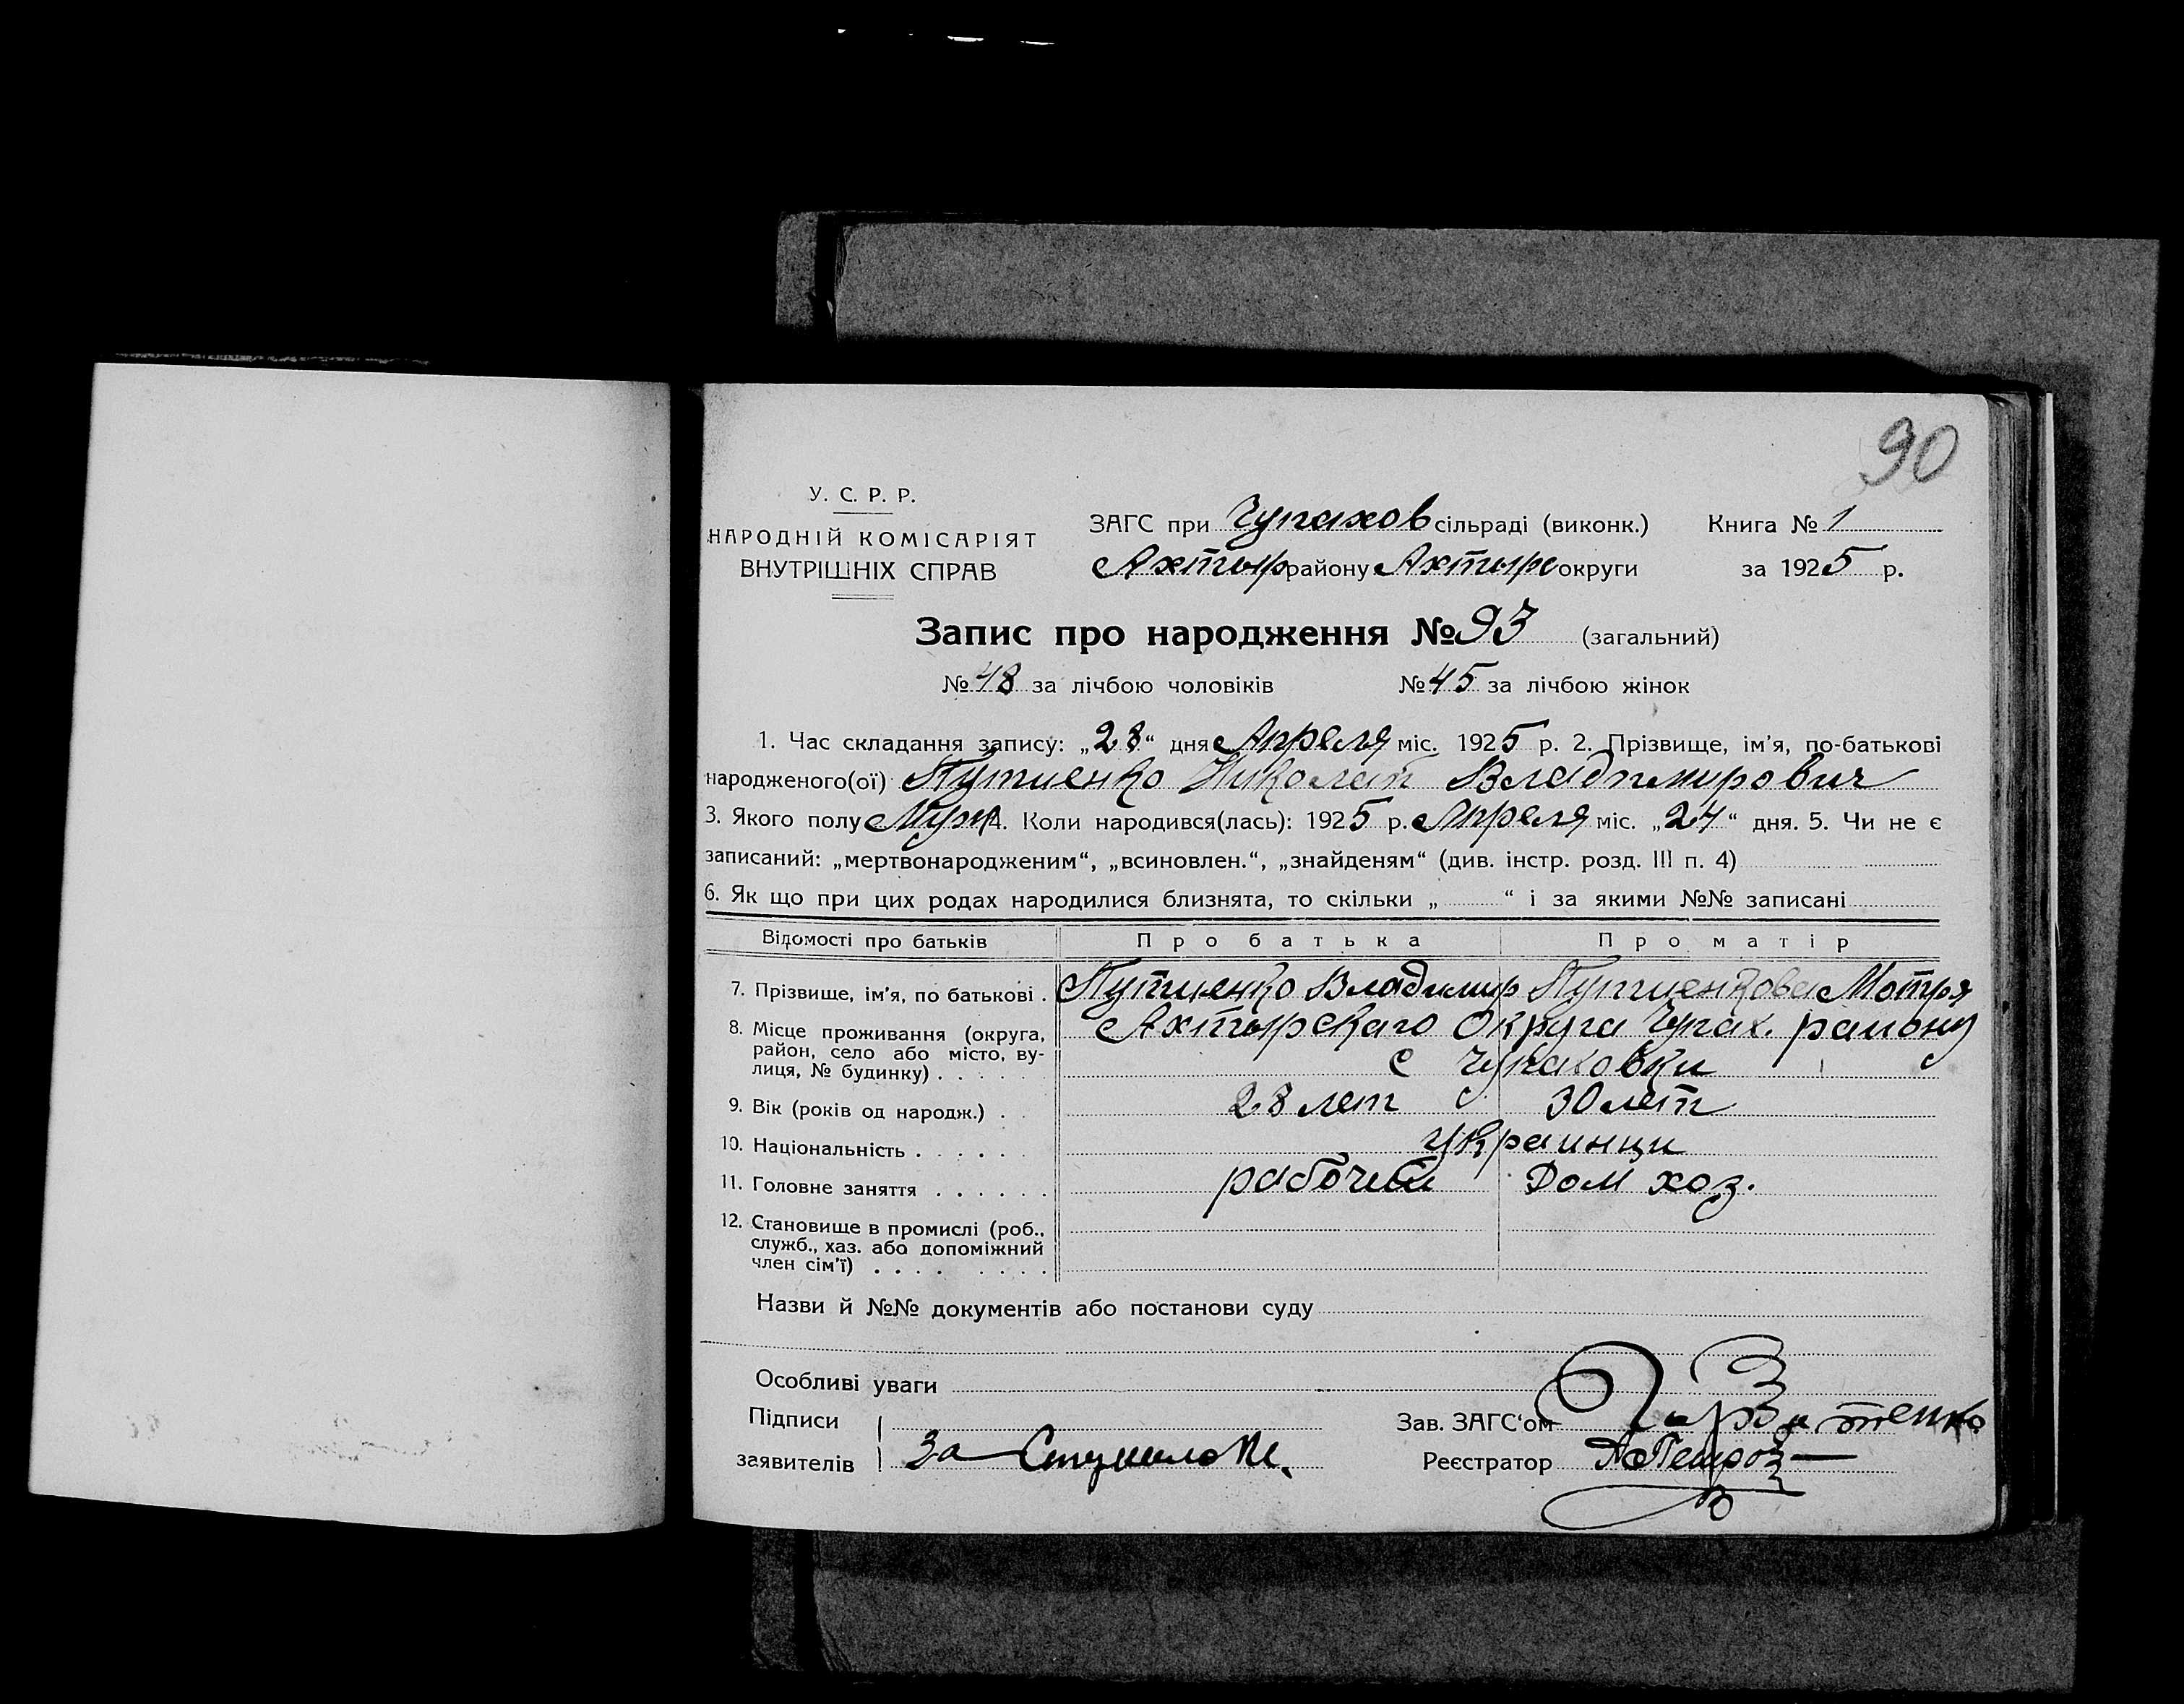 90
У. С. Р. Р.
НАРОДНІЙ КОМІСАРІЯТ
ВНУТРІШНІХ СПРАВ
ЗАГС при Чупахов сільраді (виконк.) Книга № 1
Ахтыр району Ахтырс округи за 1925 р.
Запис про народження № 93 (загальний)
№ 48 за лічбою чоловіків № 45 за лічбою жінок
1. Час складання запису: „28“ дня Апреля міс. 1925 р. 2. Прізвище, ім'я, по-батькові
народженого(ої) Путиенко Николай Владимирович
3. Якого полу Муж 4. Коли народився(лась): 1925 р. Апреля міс. „24“ дня. 5. Чи не є
записаний: „мертвонародженим“, „всиновлен.“, „знайденям“ (див. інстр. розд. III п. 4)
6. Як що при цих родах народилися близнята, то скільки „ “ і за якими №№ записані
Відомості про батьків Про батька Про матір
7. Прізвище, ім'я, по батькові . Путиенко Владимир Путиенкова Мотря
8. Місце проживання (округа, район, село або місто, вулиця, № будинку) . . . . . Ахтырскаго Округа Чупах. району
с Чупаховки
9. Вік (років од народж.) . 28 лет 30 лет
10. Національність . . . . . . Украинци
11. Головне заняття . . . . . . рабочий Дом хоз.
12. Становище в промислі (роб.,
служб., хаз. або допоміжний
член сім'ї) . . . . . . . .
Назви й №№ документів або постанови суду
Особливі уваги
Підписи Зав. ЗАГС'ом
заявителів За Реєстратор